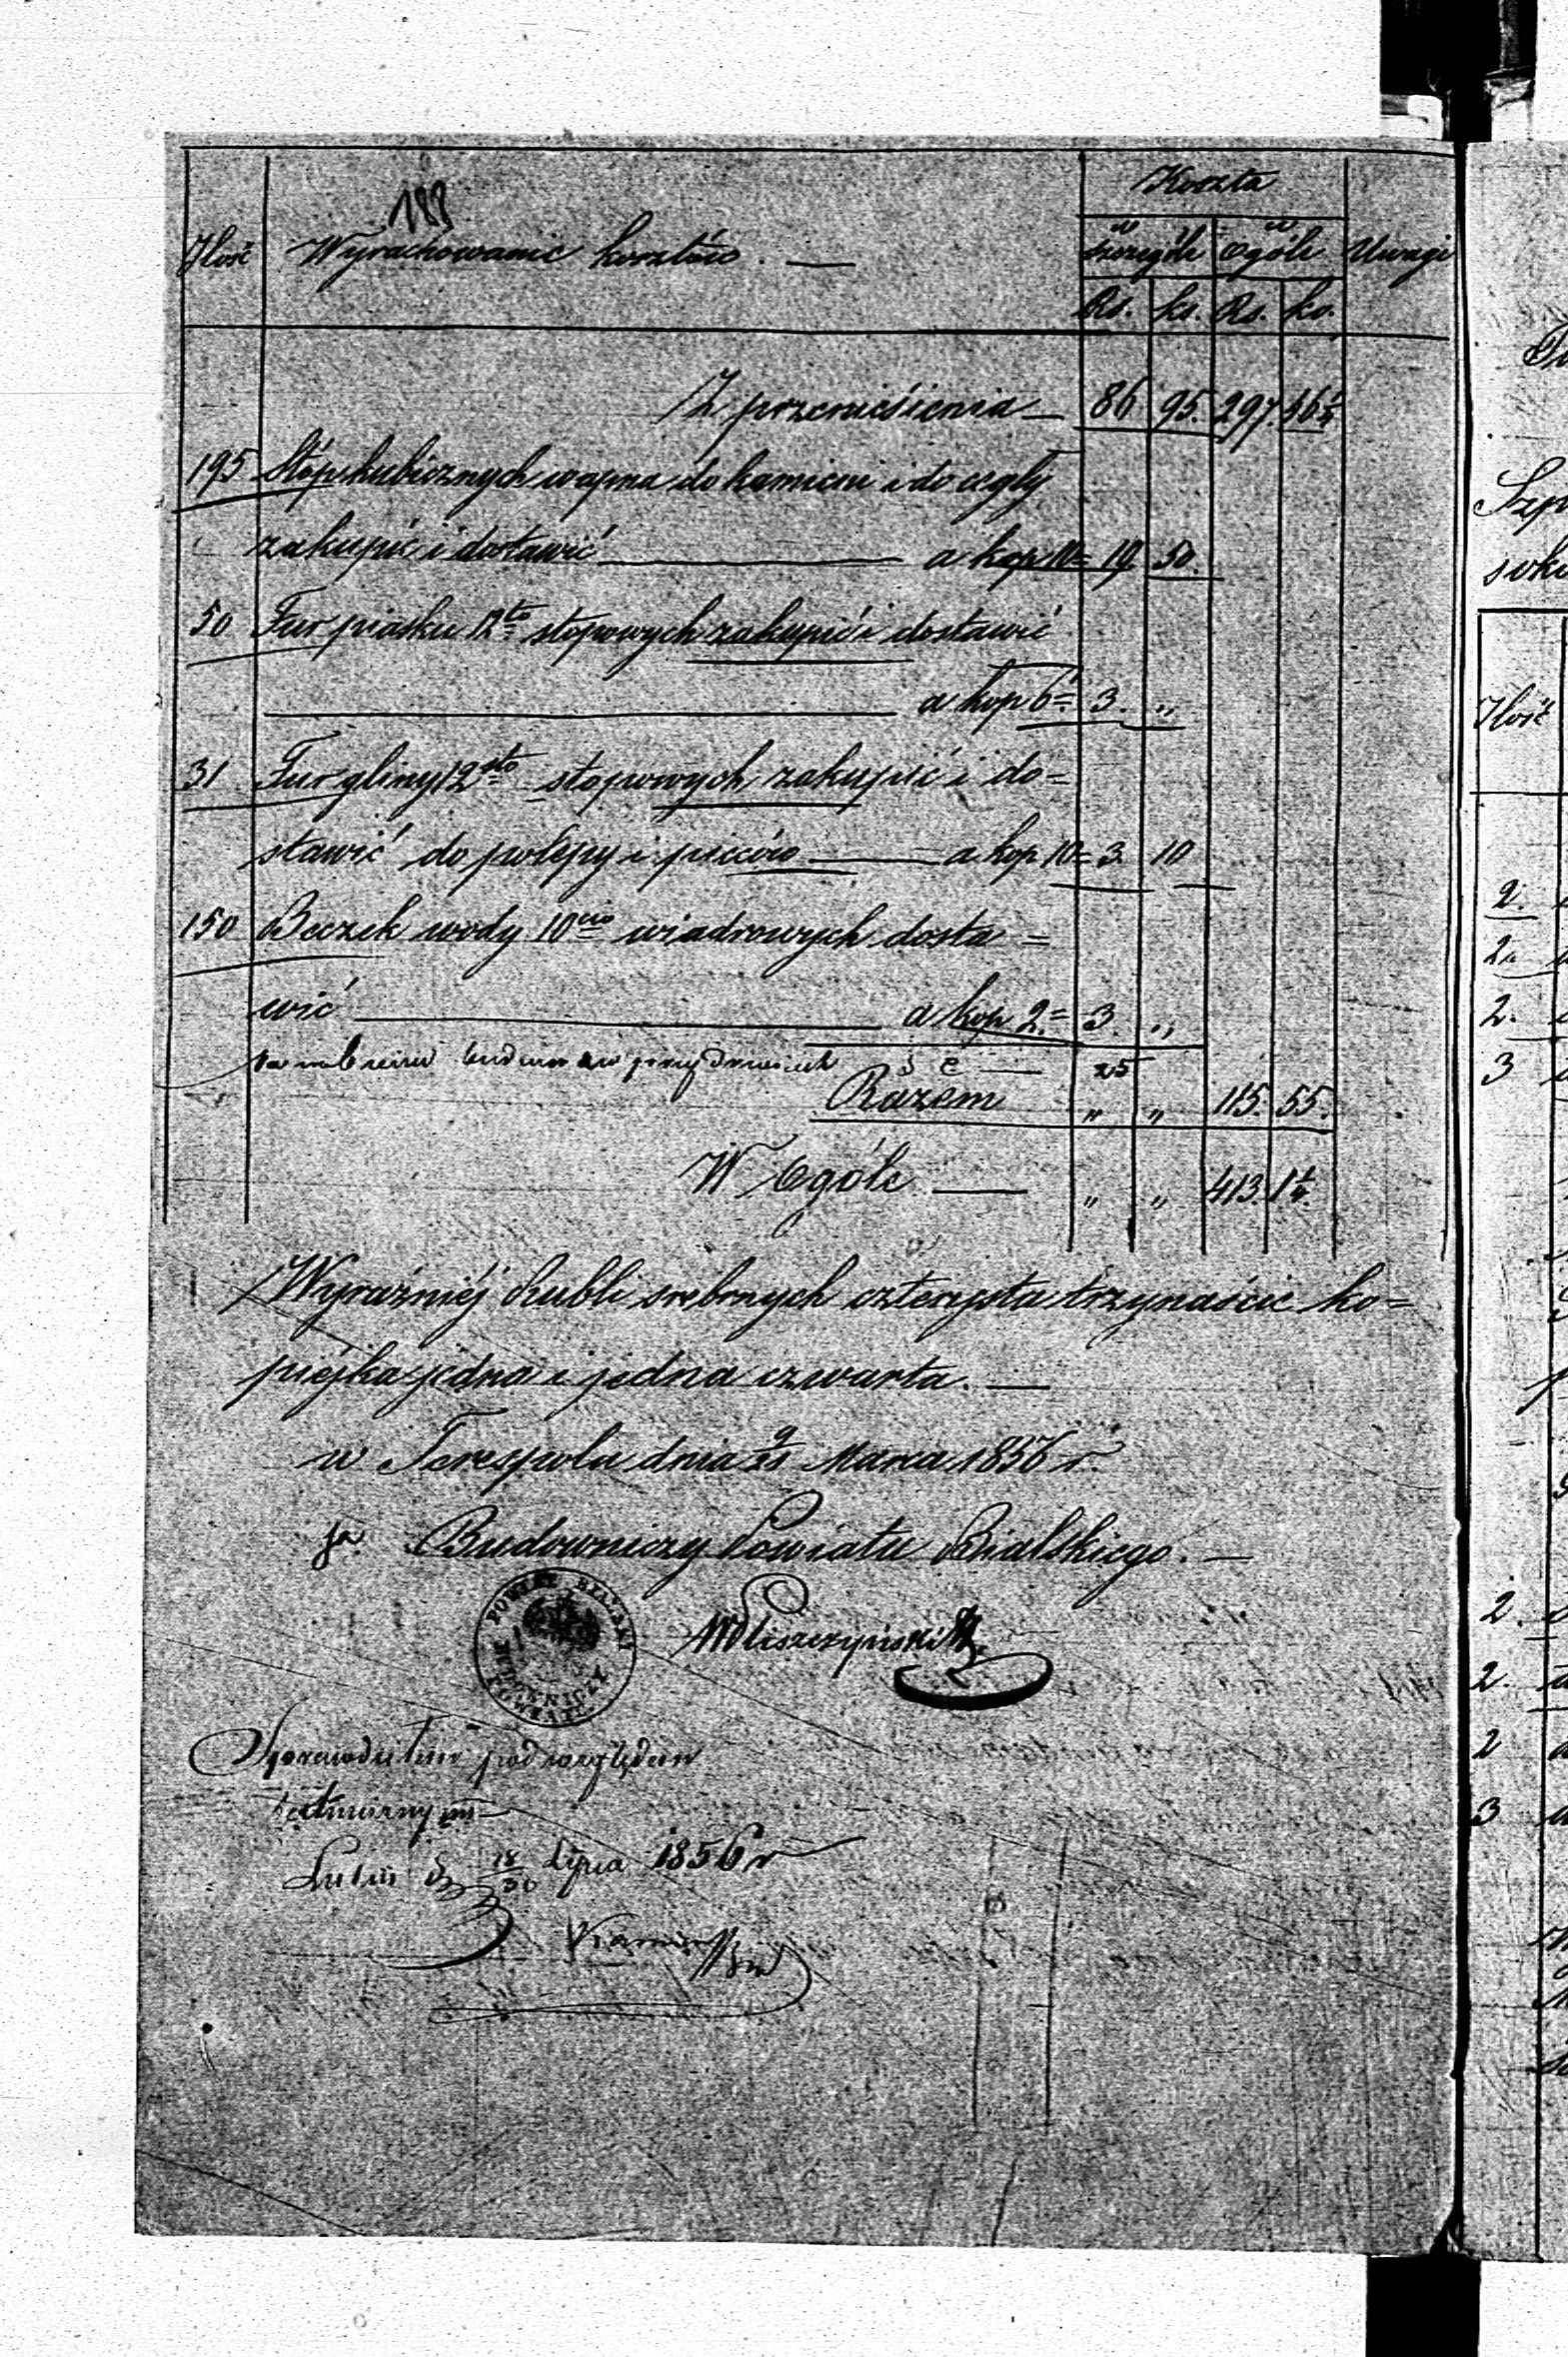 188
Koszta
Ilość Wyrachowanie kosztów. — w szczególe w ogóle Uwagi
Rs. ks. Rs. ko.
Z przeniesienia — 86 95. 297. 46¼
195 Stóp kubicznych wapna do kamieni i do cegły
zakupić i dostawić — a kop 10= 19. 50.
50 Fur piasku 12to stopowych zakupić i dostawić
a kop 6= 3. „
31 Fur gliny 12sto stopowych zakupić i do=
stawić do polepy i pieców — a kop 10= 3. 10
150 Beczek wody 10cio wiadrowych dosta=
wić — a kop 2.= 3. „
25
Razem „ „ 115. 55.
W Ogóle — „ „ 413. 1¼
Wyraźniéj Rubli srebrnych czterysta trzynaście ko=
piéjka jedna i jedna czwarta. —
w Terespolu dnia 9/21 Marca 1856 r.
Budowniczy Powiatu Bialskiego. —
POWIAT BIALSKI
BUDOWNICZY POWIATU
Sprawdziłem pod względem
Lublin d. 18/30 Lipca 1856 r
Ilość
2.
2.
2.
3
2.
2.
2
3